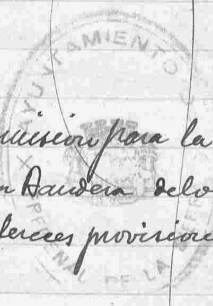 AYUNTAMIENTO
misión para la
n Bandera de lo
fereces provision
DE LA